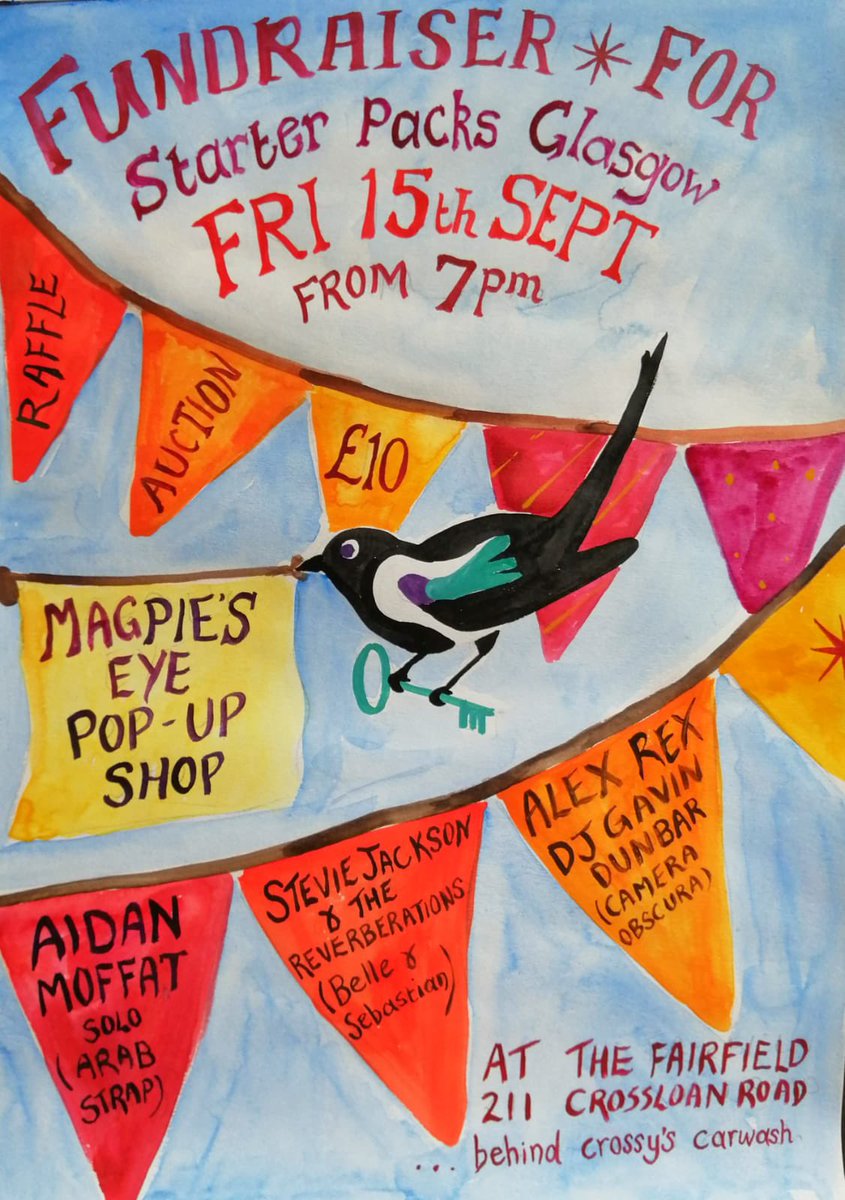 FUNDRAISER * FOR
Starter Packs Glasgow
FRI 15th SEPT
FROM 7pm
RAFFLE
AUCTION
£10
MAGPIE'S
EYE
POP-UP
SHOP
ALEX REX
DJ GAVIN
DUNBAR
(CAMERA
OBSCURA)
STEVIE JACKSON
& THE
REVERBERATIONS
(Belle &
Sebastian)
AIDAN
MOFFAT
SOLO
(ARAB
STRAP)
AT THE FAIRFIELD
211 CROSSLOAN ROAD
... behind crossy's carwash